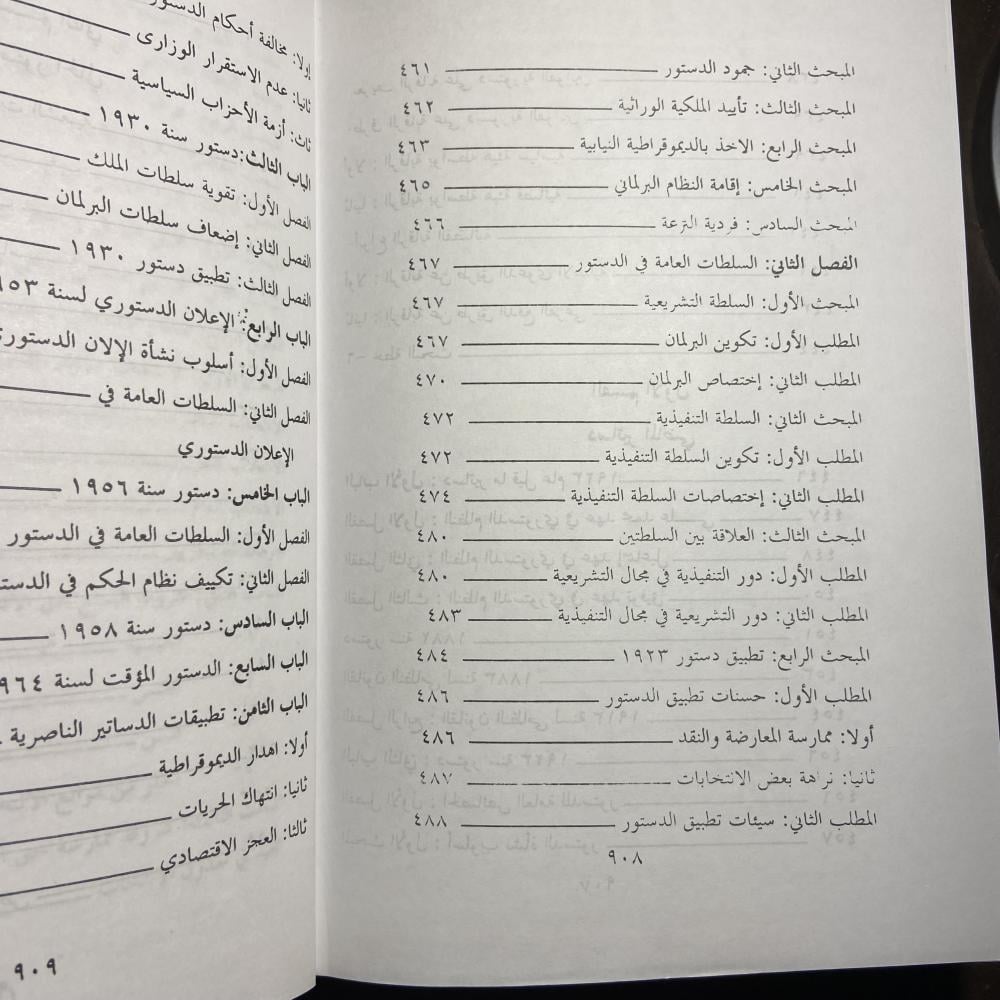 المبحث الثاني: جمود الدستور ٤٦١
المبحث الثالث: تأييد الملكية الوراثية ٤٦٢
المبحث الرابع: الاخذ بالديموقراطية النيابية ٤٦٣
المبحث الخامس: إقامة النظام البرلماني ٤٦٥
المبحث السادس: فردية النزعة ٤٦٦
الفصل الثاني: السلطات العامة في الدستور ٤٦٧
المبحث الأول: السلطة التشريعية ٤٦٧
المطلب الأول: تكوين البرلمان ٤٦٧
المطلب الثاني: إختصاص البرلمان ٤٧٠
المبحث الثاني: السلطة التنفيذية ٤٧٢
المطلب الأول: تكوين السلطة التنفيذية ٤٧٢
المطلب الثاني: إختصاصات السلطة التنفيذية ٤٧٤
المبحث الثالث: العلاقة بين السلطتين ٤٨٠
المطلب الأول: دور التنفيذية في مجال التشريعية ٤٨٠
المطلب الثاني: دور التشريعية في مجال التنفيذية ٤٨٣
المبحث الرابع: تطبيق دستور ١٩٢٣ ٤٨٤
المطلب الأول: حسنات تطبيق الدستور ٤٨٦
أولا: ممارسة المعارضة والنقد ٤٨٦
ثانيا: نزاهة بعض الانتخابات ٤٨٧
المطلب الثاني: سيئات تطبيق الدستور ٤٨٨
٩٠٨
إولا: مخالفة أحكام الدستور
ثانيا: عدم الاستقرار الوزارى
ثالث: أزمة الأحزاب السياسية
الباب الثالث:دستور سنة ١٩٣٠
الفصل الأول: تقوية سلطات الملك
الفصل الثاني: إضعاف سلطات البرلمان
الفصل الثالث: تطبيق دستور ١٩٣٠
الباب الرابع: الإعلان الدستوري لسنة ٩٥٣
الفصل الأول: أسلوب نشأة الإلان الدستوري
الفصل الثاني: السلطات العامة في
الإعلان الدستوري
الباب الخامس: دستور سنة ١٩٥٦
الفصل الأول: السلطات العامة في الدستور
الفصل الثاني: تكييف نظام الحكم في
الباب السادس: دستور سنة ١٩٥٨
الباب السابع: الدستور المؤقت لسنة ٩٦٤
الباب الثامن: تطبيقات الدساتير الناصرية
أولا: اهدار الديموقراطية
ثانيا: انتهاك الحريات
ثالثا: العجز الاقتصادي
٩٠٩